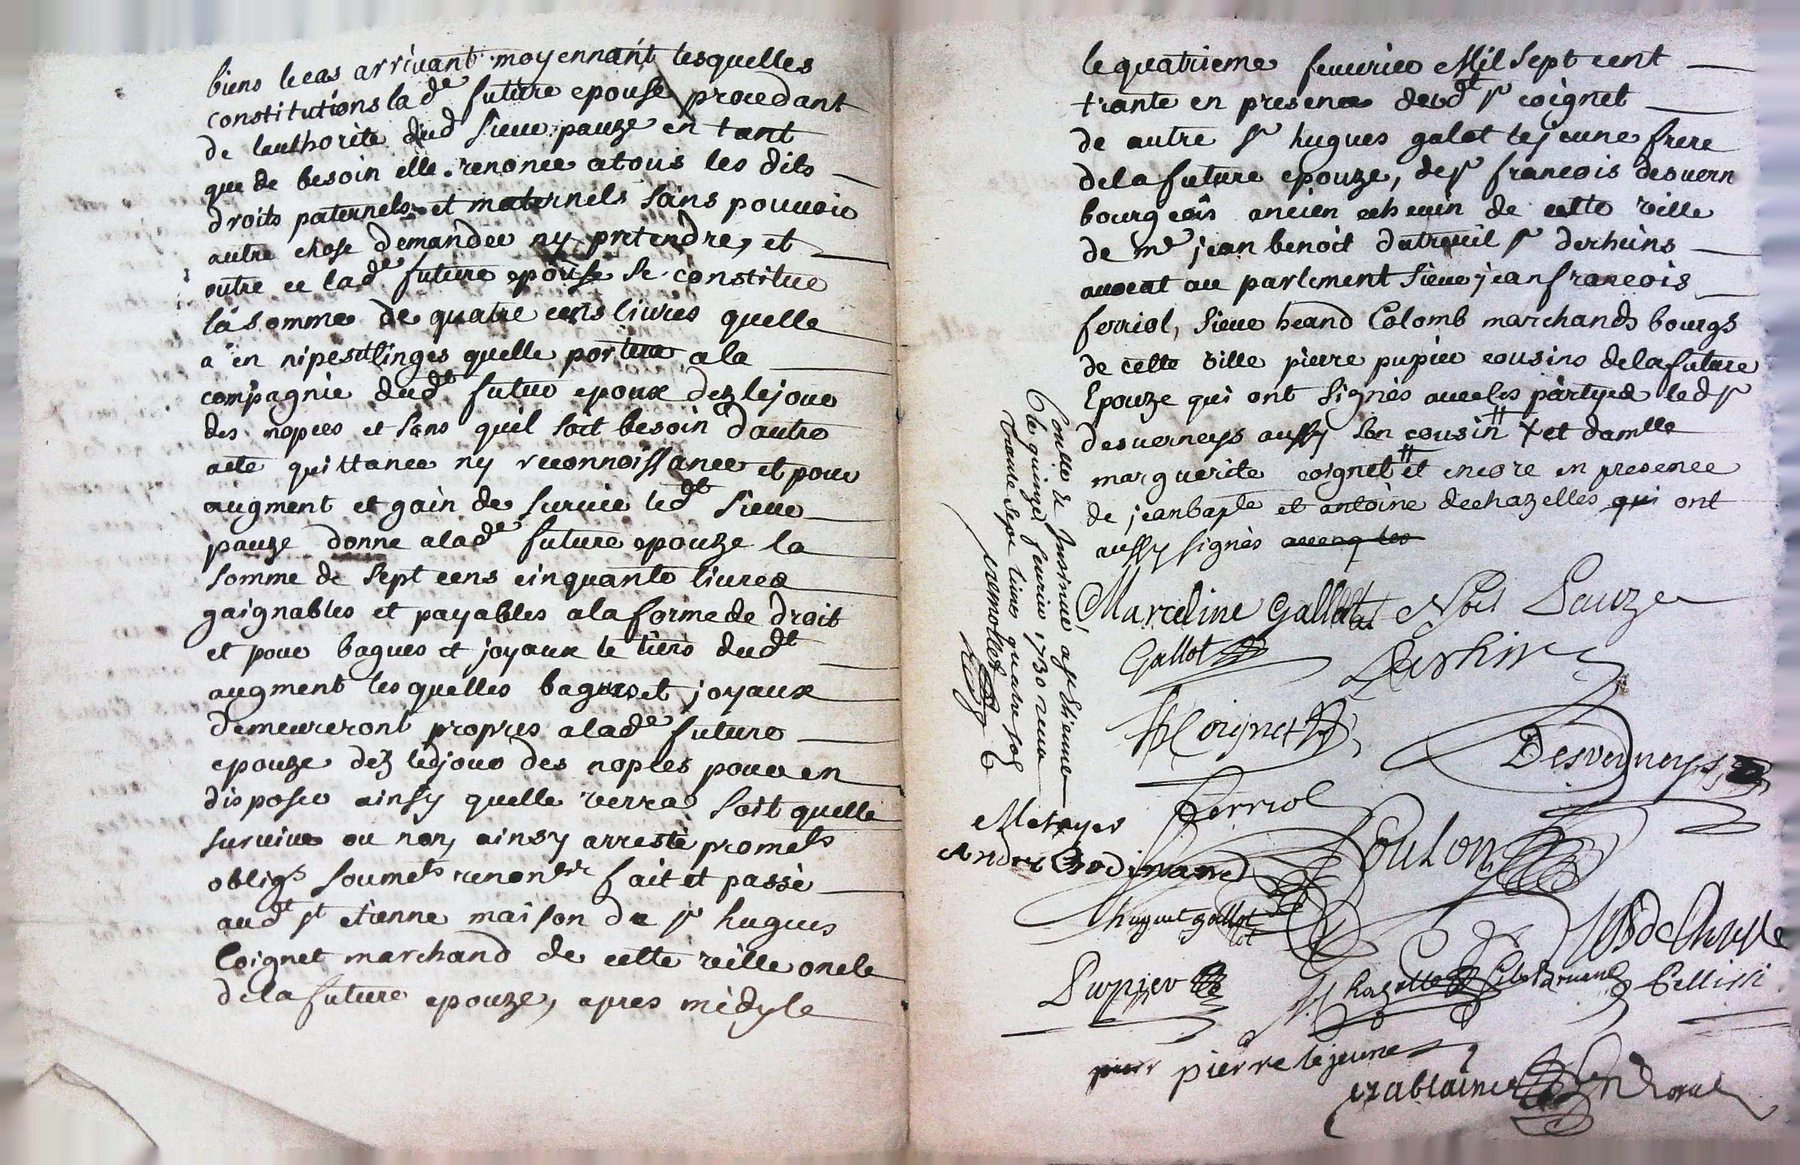 biens le cas arrivant moyennant lesquelles
constitutions lad^e future epouse procedant
de lauthorité dud^t sieur pauze en tant
que de besoin elle renonce atous les dits
droits paternels et maternels sans pouvoir
autre chose demander ny pretendre, et
outre ce lad^e future epouse se constitue
la somme de quatre cens livres quelle
a en nipes et linges quelle portera ala
compagnie dud^t futur epoux dez le jour
des nopces et sans quil soit besoin dautre
acte quittance ny reconnoissance et pour
augment et gain de survie led^t sieur
pauze donne alad^e future epouze la
somme de sept cens cinquante livres
gaignables et payables ala forme de droit
et pour bagues et joyaux le tiers dud^t
augment lesquelles bagues et joyaux
demeureront propres alad^e future
epouze dez led jour des nopces pour en
disposer ainsy quelle verra soit quelle
survive ou non, ainsy arresté promets
oblig^s soumets renon^s fait et passé
aud^t s^t etienne maison de s^r hugues
Coignet marchand de cette ville oncle
dela future epouze, apres midy le
le quatrieme fevrier Mil sept cent
trante en presence dud^t s^r coignet
de autre s^r hugues galot lejeune frere
dela future epouze, de s^r francois desvern
bourgeois ancien echevin de cette ville
de m^e jean benoit dutreuil s^r derhins
avocat au parlement sieur jean francois
ferriol, sieur heand Colomb marchands bourg^s
de cette ville pierre pupier cousins dela future
Epouze qui ont signés avec les partyes led s^r
desverneys aussy son cousin et damlle
marguerite coignet et encore en presence
de jean bap^te et antoine dechazelles qui ont
aussy signés avecq les
Marceline Gallot Noel Pauze
Gallot Derhins
h Coignet
Desverneys
Ferriol
Coulon
Metayer
hugues gallot
Pupier
Chazelle
Pellissi
pierre lejeune
Conllé & Insinué a s^t Etienne
le quinze fevrier 1730 receu
trante sept livres quatre sols